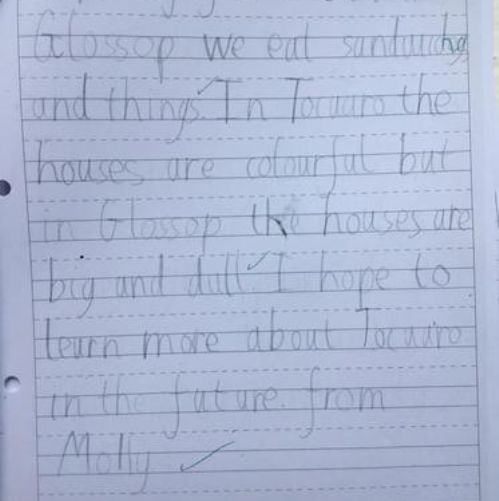 Glossop we eat sandwichs
and things. In Tocuaro the
houses are colourful but
in Glossop the houses are
big and dull. I hope to
learn more about Tocuaro
in the future. from
Molly